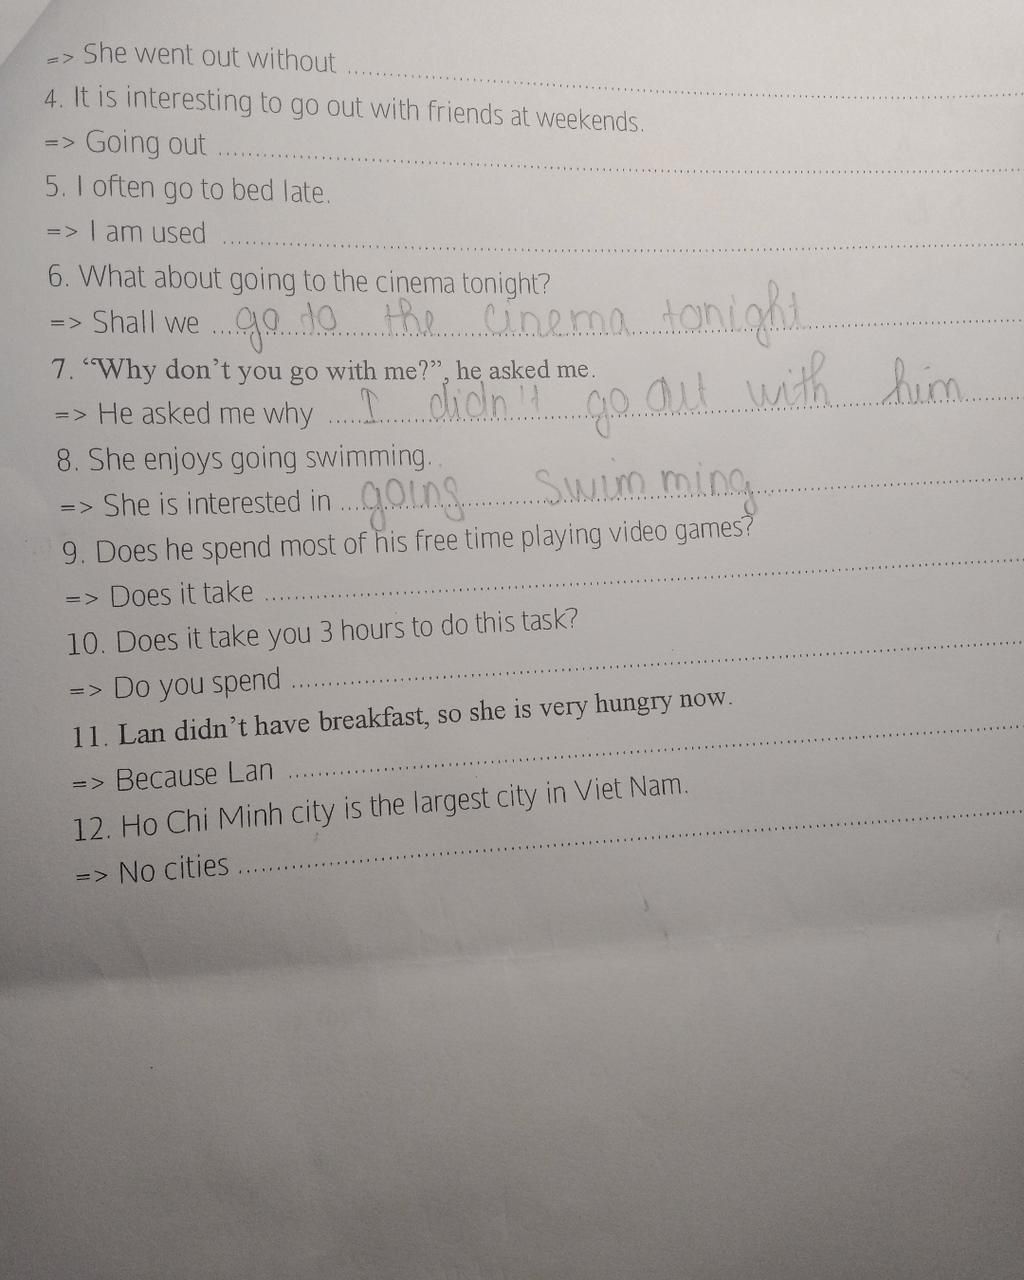 => She went out without ........................
4. It is interesting to go out with friends at weekends.
=> Going out ........................
5. I often go to bed late.
=> I am used ........................
6. What about going to the cinema tonight?
=> Shall we go to the cinema tonight
7. “Why don’t you go with me?”, he asked me.
=> He asked me why I didn't go out with him
8. She enjoys going swimming.
=> She is interested in going swimming
9. Does he spend most of his free time playing video games?
=> Does it take ........................
10. Does it take you 3 hours to do this task?
=> Do you spend ........................
11. Lan didn’t have breakfast, so she is very hungry now.
=> Because Lan ........................
12. Ho Chi Minh city is the largest city in Viet Nam.
=> No cities ........................